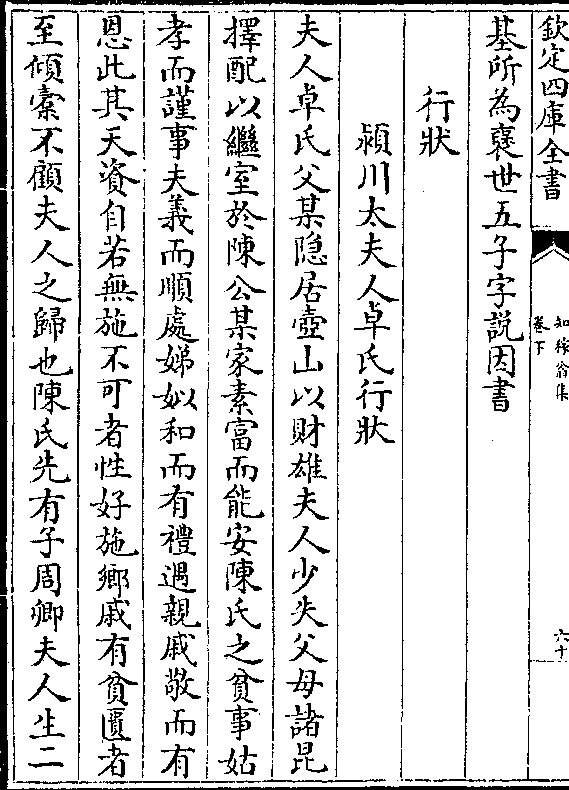 欽定四庫全書
知稼翁集
卷下
六十
基所為襃世五子字說因書
行狀
潁川太夫人卓氏行狀
夫人卓氏父某隐居壺山以財雄夫人少失父母諸昆
擇配以繼室於陳公某家素富而能安陳氏之貧事姑
孝而謹事夫義而順處娣姒和而有禮遇親戚敬而有
恩此其天資自若無施不可者性好施鄉戚有貧匱者
至傾橐不顧夫人之歸也陳氏先有子周卿夫人生二